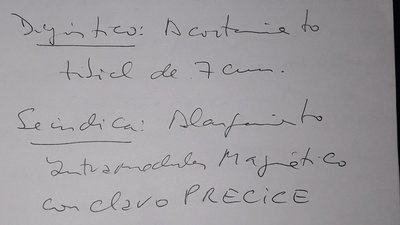 Diagnóstico: Acortamiento
tibial de 7 cm.
Se indica: Alargamiento
Intramedular Magnético
con clavo PRECICE